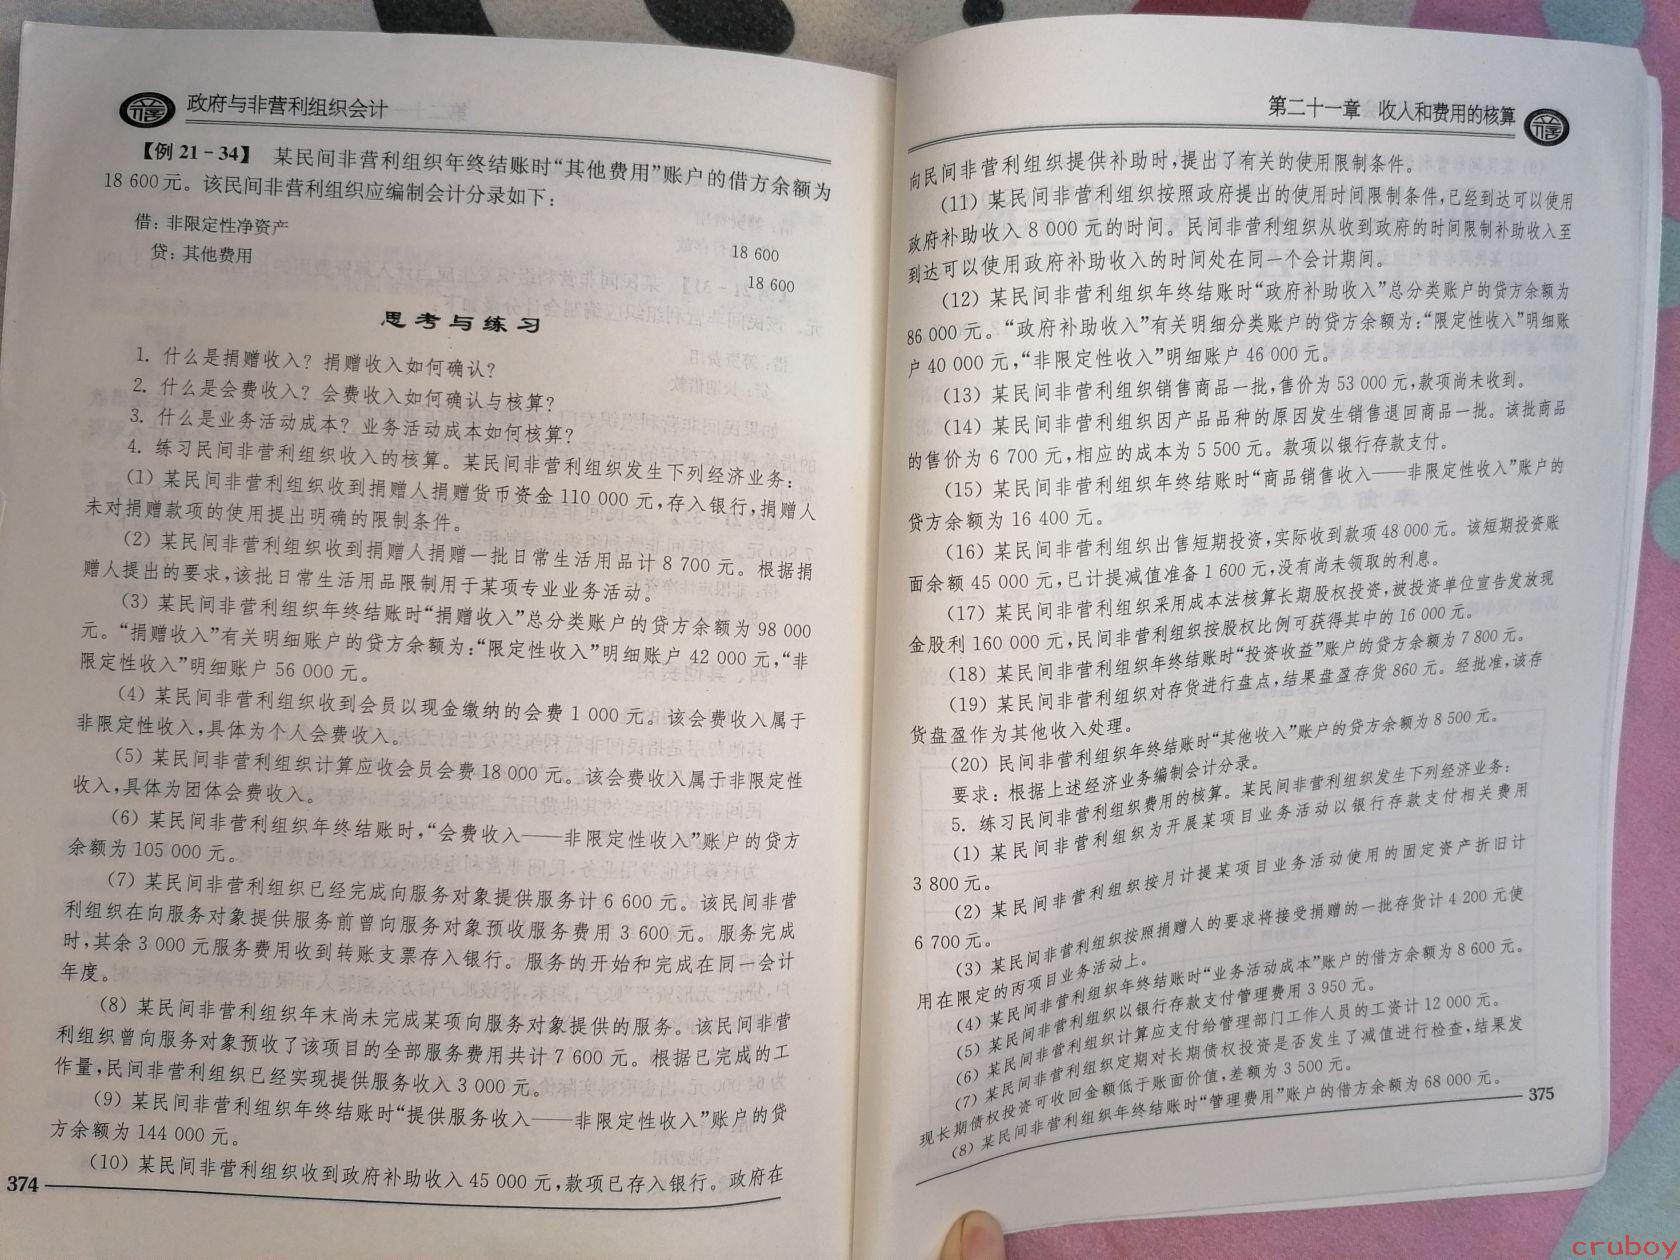 政府与非营利组织会计
【例 21-34】 某民间非营利组织年终结账时“其他费用”账户的借方余额为
18 600 元。该民间非营利组织应编制会计分录如下：
借：非限定性净资产 18 600
贷：其他费用 18 600
思考与练习
1. 什么是捐赠收入？捐赠收入如何确认？
2. 什么是会费收入？会费收入如何确认与核算？
3. 什么是业务活动成本？业务活动成本如何核算？
4. 练习民间非营利组织收入的核算。某民间非营利组织发生下列经济业务：
(1) 某民间非营利组织收到捐赠人捐赠货币资金 110 000 元，存入银行，捐赠人
未对捐赠款项的使用提出明确的限制条件。
(2) 某民间非营利组织收到捐赠人捐赠一批日常生活用品计 8 700 元。根据捐
赠人提出的要求，该批日常生活用品限制用于某项专业业务活动。
(3) 某民间非营利组织年终结账时“捐赠收入”总分类账户的贷方余额为 98 000
元。“捐赠收入”有关明细账户的贷方余额为：“限定性收入”明细账户 42 000 元，“非
限定性收入”明细账户 56 000 元。
(4) 某民间非营利组织收到会员以现金缴纳的会费 1 000 元。该会费收入属于
非限定性收入，具体为个人会费收入。
(5) 某民间非营利组织计算应收会员会费 18 000 元。该会费收入属于非限定性
收入，具体为团体会费收入。
(6) 某民间非营利组织年终结账时，“会费收入——非限定性收入”账户的贷方
余额为 105 000 元。
(7) 某民间非营利组织已经完成向服务对象提供服务计 6 600 元。该民间非营
利组织在向服务对象提供服务前曾向服务对象预收服务费用 3 600 元。服务完成
时，其余 3 000 元服务费用收到转账支票存入银行。服务的开始和完成在同一会计
年度。
(8) 某民间非营利组织年末尚未完成某项向服务对象提供的服务。该民间非营
利组织曾向服务对象预收了该项目的全部服务费用共计 7 600 元。根据已完成的工
作量，民间非营利组织已经实现提供服务收入 3 000 元。
(9) 某民间非营利组织年终结账时“提供服务收入——非限定性收入”账户的贷
方余额为 144 000 元。
(10) 某民间非营利组织收到政府补助收入 45 000 元，款项已存入银行。政府在
374
第二十一章 收入和费用的核算
向民间非营利组织提供补助时，提出了有关的使用限制条件。
(11) 某民间非营利组织按照政府提出的使用时间限制条件，已经到达可以使用
政府补助收入 8 000 元的时间。民间非营利组织从收到政府的时间限制补助收入至
到达可以使用政府补助收入的时间处在同一个会计期间。
(12) 某民间非营利组织年终结账时“政府补助收入”总分类账户的贷方余额为
86 000 元。“政府补助收入”有关明细分类账户的贷方余额为：“限定性收入”明细账
户 40 000 元，“非限定性收入”明细账户 46 000 元。
(13) 某民间非营利组织销售商品一批，售价为 53 000 元，款项尚未收到。
(14) 某民间非营利组织因产品品种的原因发生销售退回商品一批。该批商品
的售价为 6 700 元，相应的成本为 5 500 元。款项以银行存款支付。
(15) 某民间非营利组织年终结账时“商品销售收入——非限定性收入”账户的
贷方余额为 16 400 元。
(16) 某民间非营利组织出售短期投资，实际收到款项 48 000 元。该短期投资账
面余额 45 000 元，已计提减值准备 1 600 元，没有尚未领取的利息。
(17) 某民间非营利组织采用成本法核算长期股权投资，被投资单位宣告发放现
金股利 160 000 元，民间非营利组织按股权比例可获得其中的 16 000 元。
(18) 某民间非营利组织年终结账时“投资收益”账户的贷方余额为 7 800 元。
(19) 某民间非营利组织对存货进行盘点，结果盘盈存货 860 元。经批准，该存
货盘盈作为其他收入处理。
(20) 民间非营利组织年终结账时“其他收入”账户的贷方余额为 8 500 元。
要求：根据上述经济业务编制会计分录。
5. 练习民间非营利组织费用的核算。某民间非营利组织发生下列经济业务：
(1) 某民间非营利组织为开展某项目业务活动以银行存款支付相关费用
3 800 元。
(2) 某民间非营利组织按月计提某项目业务活动使用的固定资产折旧计
6 700 元。
(3) 某民间非营利组织按照捐赠人的要求将接受捐赠的一批存货计 4 200 元使
用在限定的丙项目业务活动上。
(4) 某民间非营利组织年终结账时“业务活动成本”账户的借方余额为 8 600 元。
(5) 某民间非营利组织以银行存款支付管理费用 3 950 元。
(6) 某民间非营利组织计算应支付给管理部门工作人员的工资计 12 000 元。
(7) 某民间非营利组织定期对长期债权投资是否发生了减值进行检查，结果发
现长期债权投资可收回金额低于账面价值，差额为 3 500 元。
(8) 某民间非营利组织年终结账时“管理费用”账户的借方余额为 68 000 元。
375
cruboy